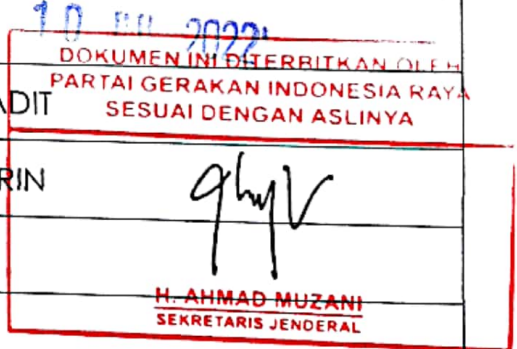 10 2022
DOKUMEN INI DITERBITKAN OLEH
PARTAI GERAKAN INDONESIA RAYA
ADIT
SESUAI DENGAN ASLINYA
RIN
H. AHMAD MUZANI
SEKRETARIS JENDERAL